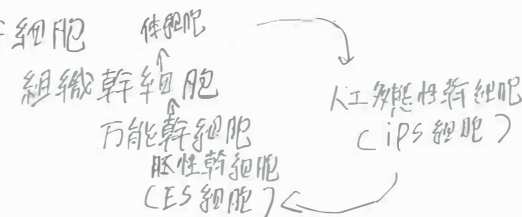 細胞 体細胞
組織幹細胞
万能幹細胞
胚性幹細胞
(ES細胞)
人工多能性幹細胞
(iPS細胞)